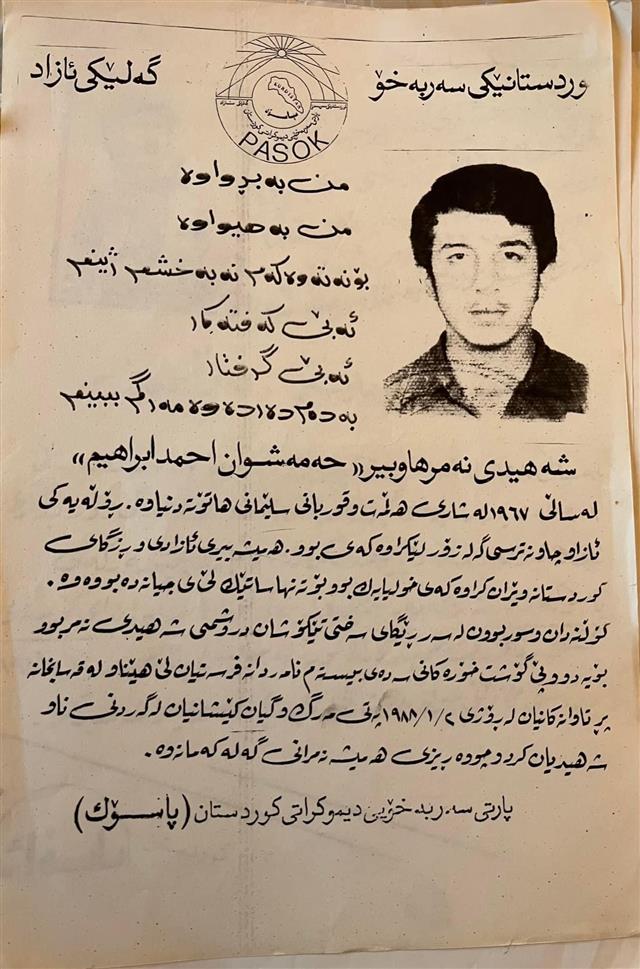 وردستانێکی سەربەخۆ
گەلێکی ئازاد
KURDISTAN
PASOK
من بە بڕواوە
من بە هیواوە
بۆ نەتەوەکەم نەبەخشم ژینم
ئەبێ کەفتەکار
ئەبێ گرفتار
بە دەم دەردەوە مەرگم ببینم
شەهیدی نەمر هاوبیر «حەمە شوان احمد ابراهیم»
لە ساڵی ١٩٦٧ لە شاری هەڵمەت و قوربانی سلێمانی هاتۆتە دنیاوە. ڕۆڵەیەکی
ئازاو چاونەترسی گەلە زۆر لێکراوەکەی بوو. هەمیشە بیری ئازادی و ڕزگای
کوردستانە وێران کراوەکەی خولیایەک بوو بۆ تەنها ساتێک لێی جیانەدەبووەوە.
کۆڵنەدان و سوربوون لەسەر ڕێگای سەختی تێکۆشان دروشمی شەهیدی نەمر بوو
بۆیە دووپێ گۆشت خۆرەکانی سەدەی بیستەم نامەردانە فرسەتیان لێ هێناو لە قەسابخانە
پڕ تاوانەکانیان لە ڕۆژی ١٩٨٨/١/٢ پەتی مەرگ و گیان کێشانیان لە گەردنی ناو
شەهیدیان کرد و چووە ڕیزی هەمیشە نەمرانی گەلەکەمانەوە.
پارتی سەربەخۆیی دیموکراتی کوردستان (پاسۆک)